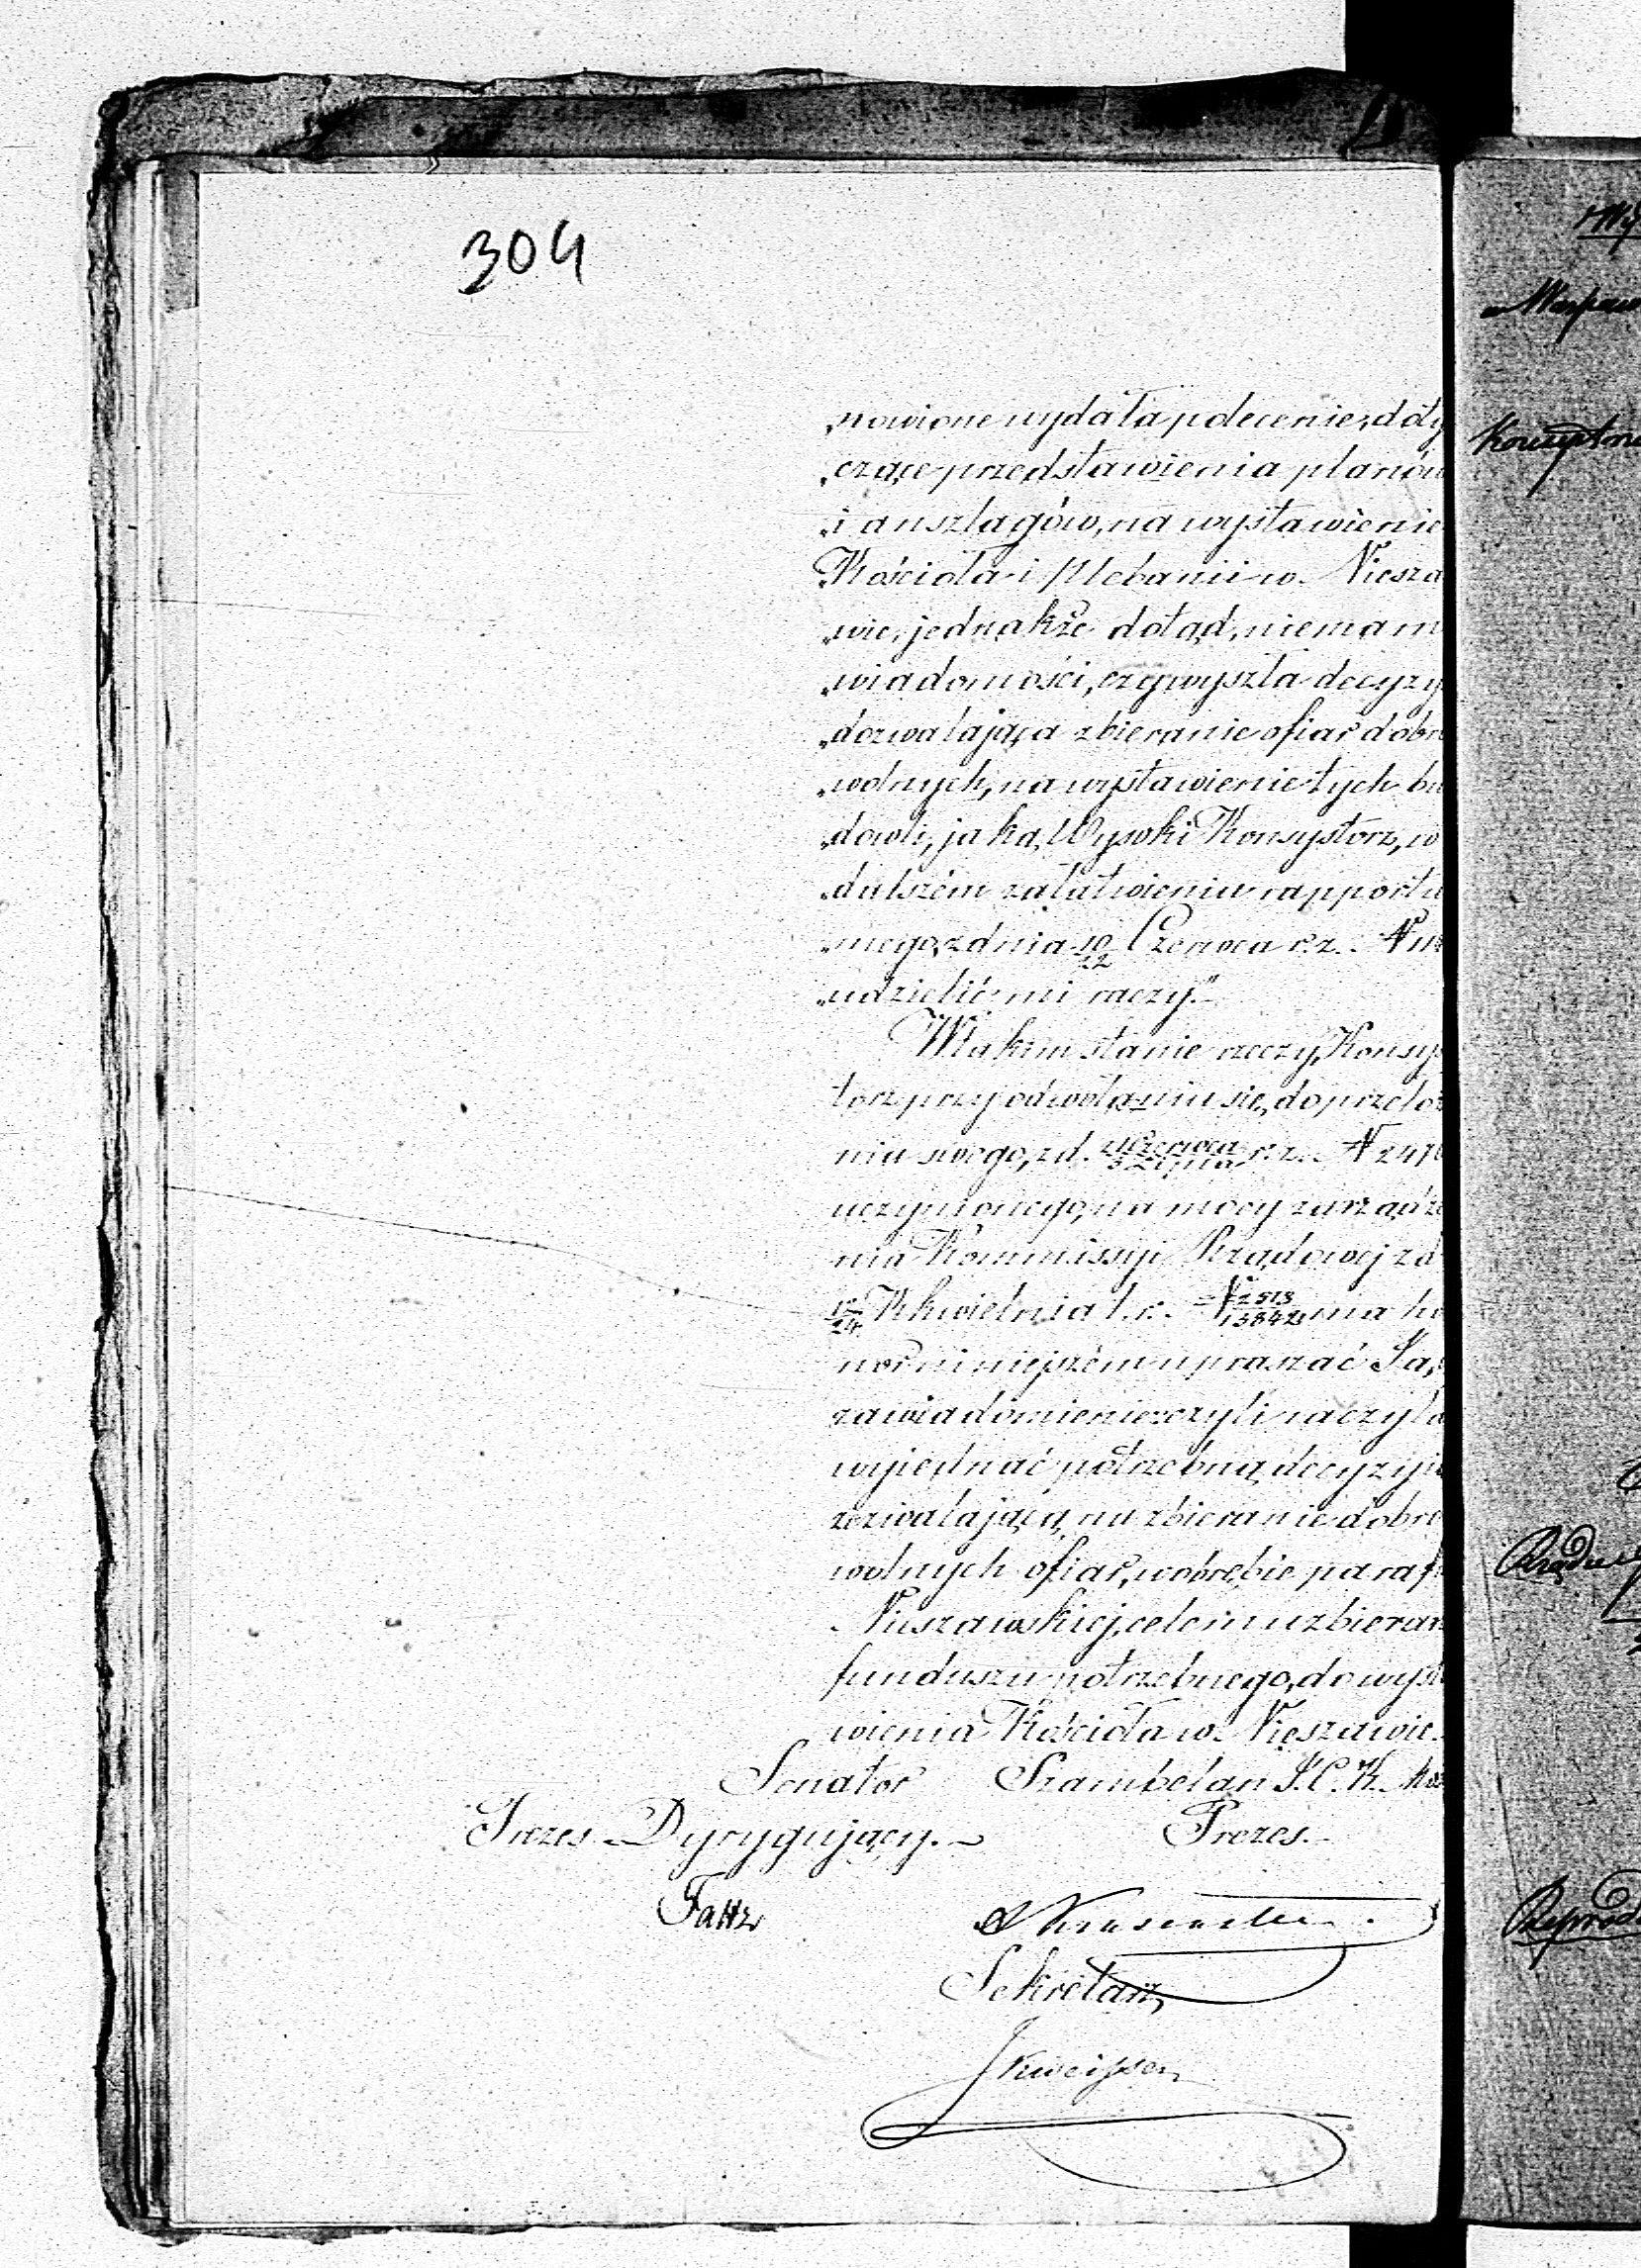 304
„nowione wydała polecenie, doty
„czące przedstawienia planów
„i anszlagów, na wystawienie
„Kościoła i Plebanii w. Niesza
„wie, jednakże dotąd, niemam
„wiadomości, czy wyszła decyzy
„dozwalająca zbieranie ofiar dobro
„wolnych, na wystawienie tych bu
„dowli, jaką, Wysoki Konsystorz, w
„dalszém załatwieniu rapportu
„mego, z dnia 10/22 Czerwca r. z. N
„udzielić mi raczy."
W takim stanie rzeczy, Konsys
torz przy odwołaniu się, do przełoże
nia swego, z d. Czerwca/Lipca r. z. N 247
uczynionego, na mocy zarządze
nia Kommissyi Rządowej z d
12/24 Kwietnia t. r. N 2513/13842 ma ho
nor niniejszém upraszać Ją, o
zawiadomienie: czyli raczyła
wyjednać potrzebną, decyzyją
zezwalającą, na zbieranie dobro
wolnych ofiar, w obrębie paraf
Nieszawskiej, celem uzbieran
funduszu potrzebnego, do wysta
wienia Kościoła w. Nieszawie.
Senator Szambelan J. C. K. Mo
Prezes Dyrygujący. Prezes.
Sekretarz
Rządu